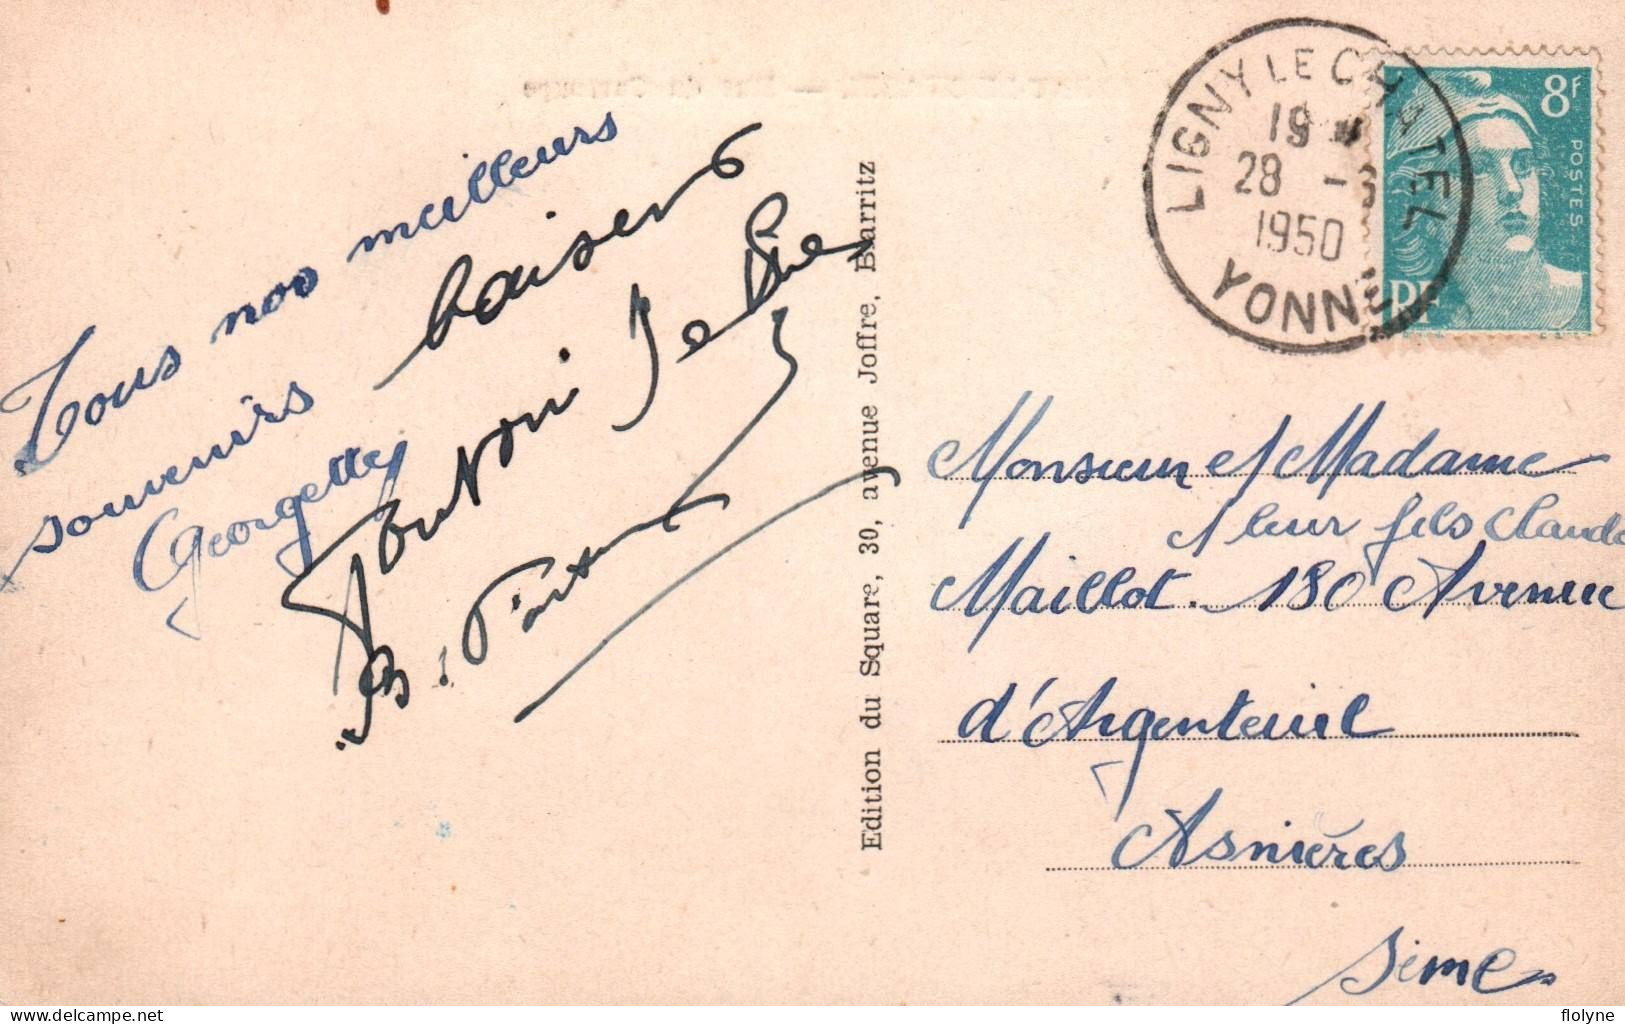 Tous nos meilleurs
souvenirs
Georgette
baisers
Edition du Square, 30, avenue Joffre, Biarritz
LIGNY LE CHATEL
19
28 -
1950
YONNE
8F
POSTES
RF
Monsieur et Madame
et leur fils Claude
Maillot. 180 Avenue
d'Argenteuil
Asnières
Seine
flolyne